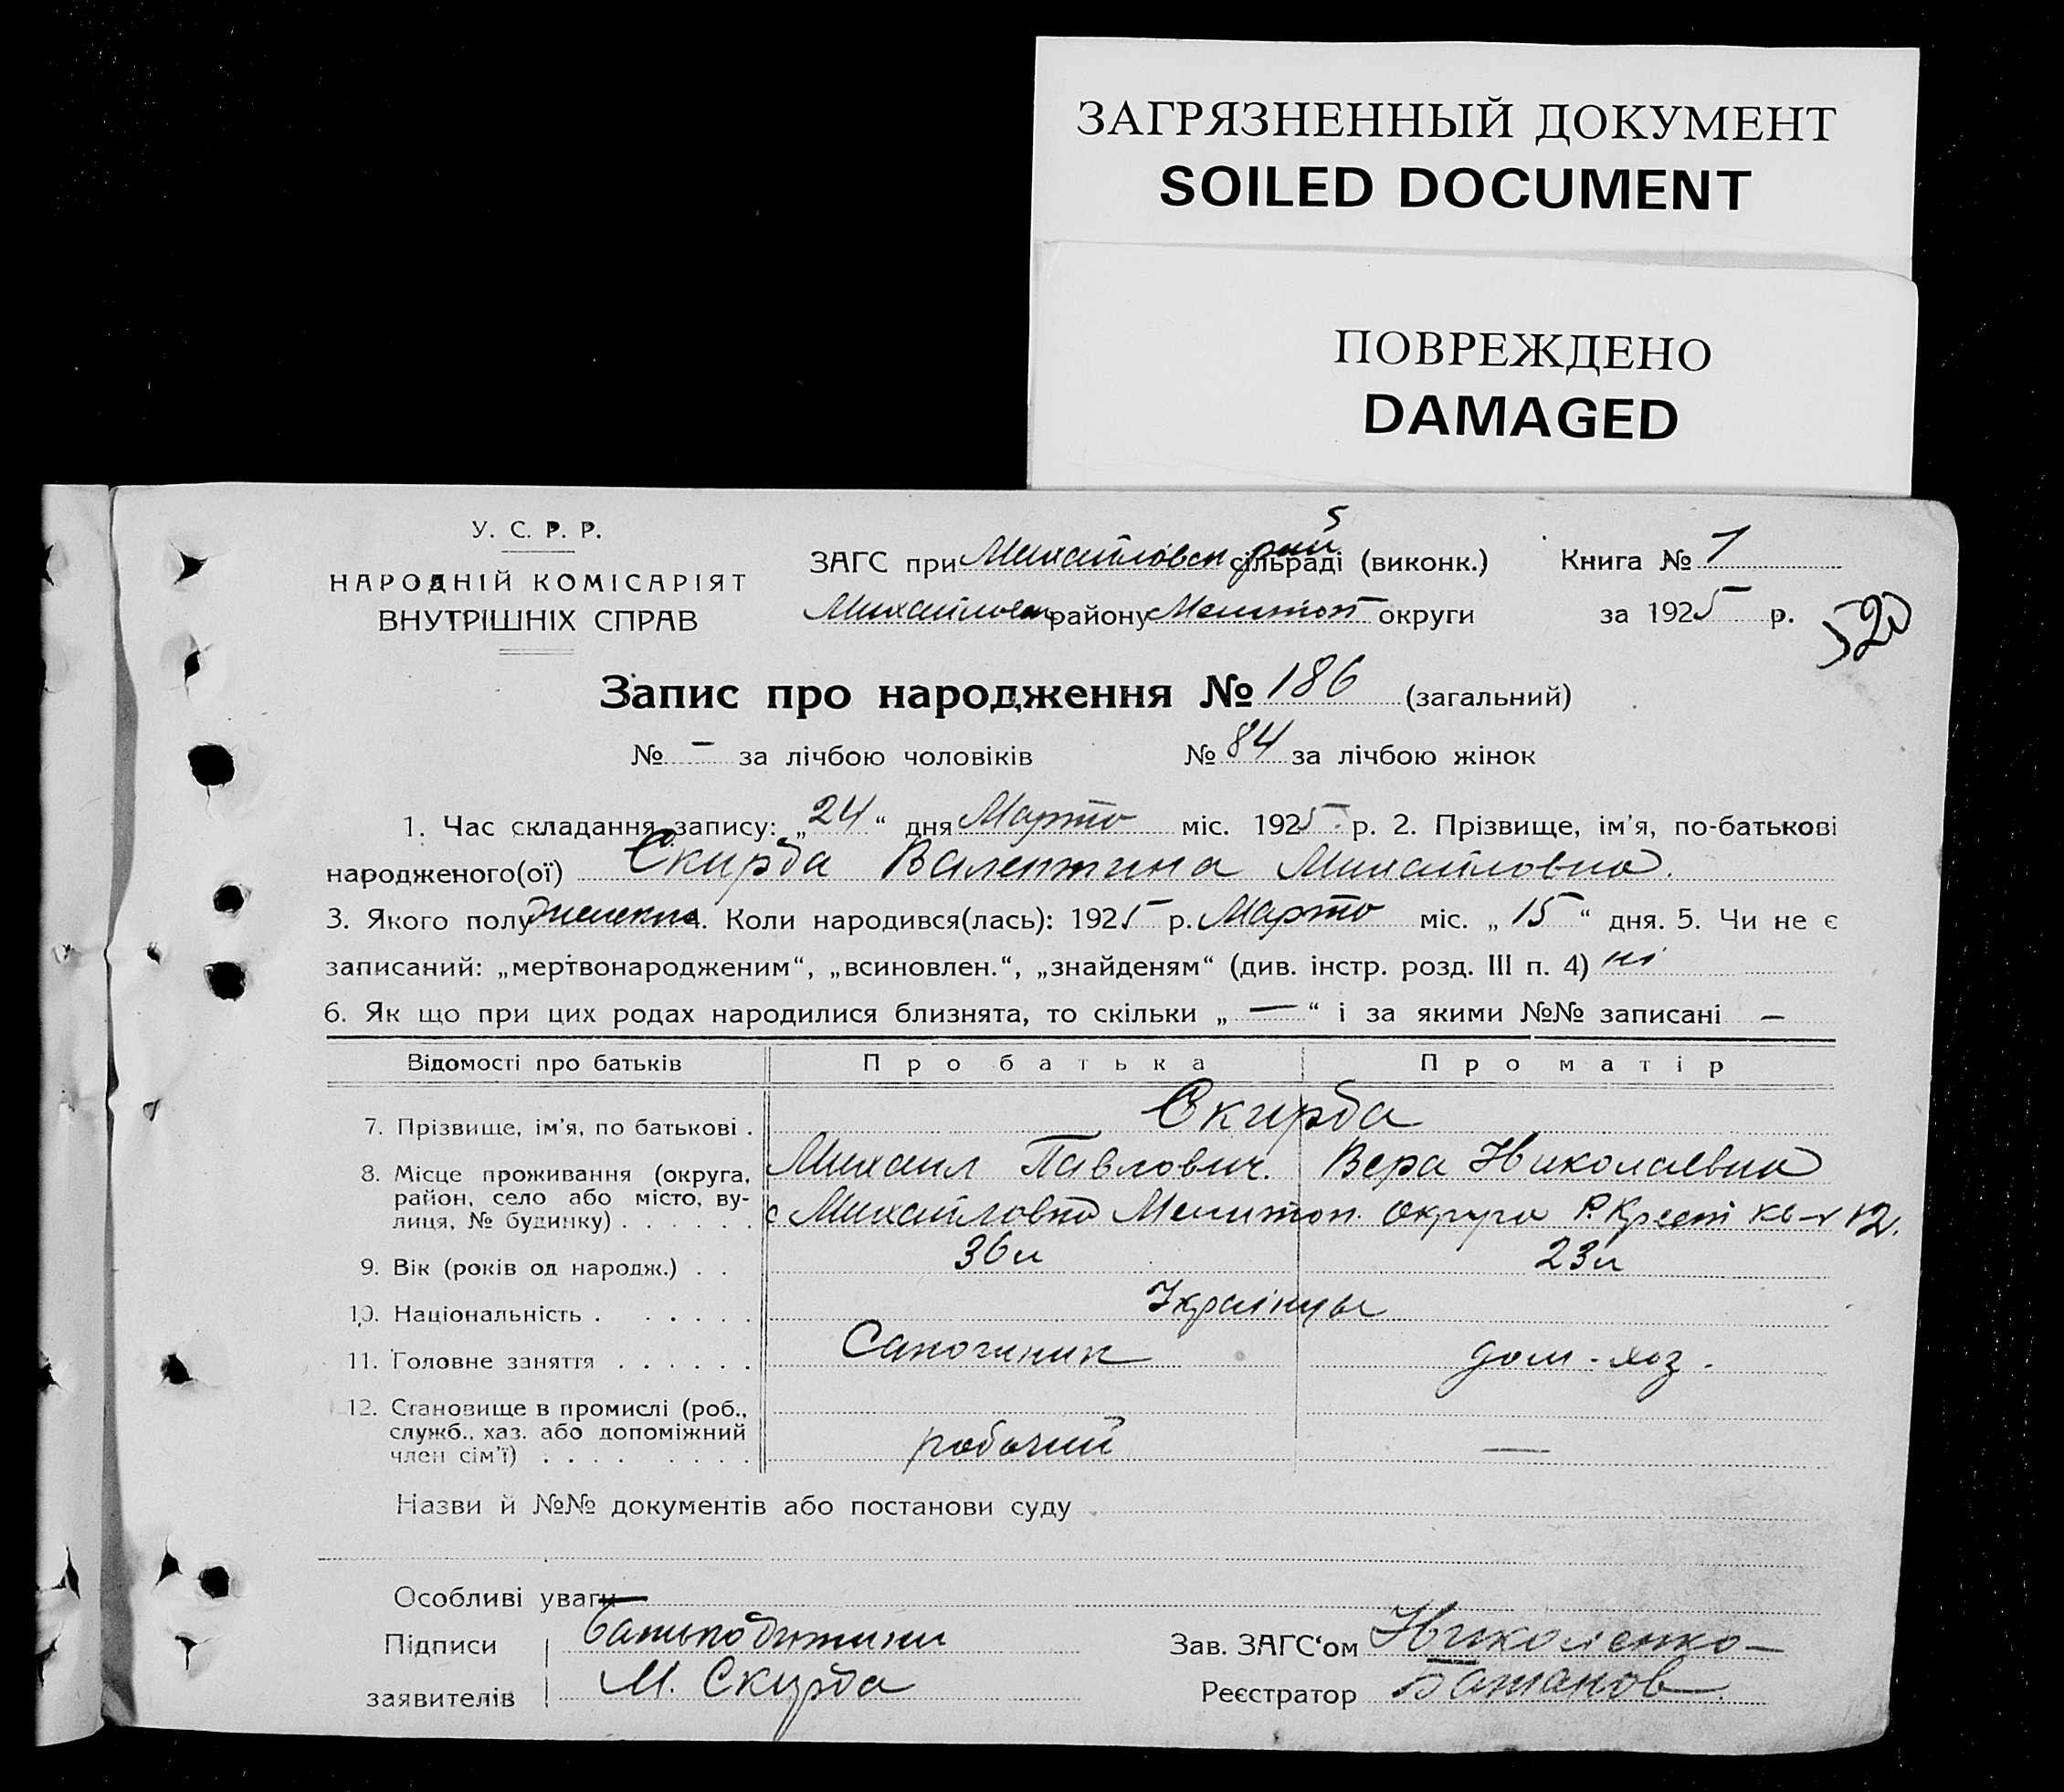 ЗАГРЯЗНЕННЫЙ ДОКУМЕНТ
SOILED DOCUMENT
ПОВРЕЖДЕНО
DAMAGED
У. С. Р. Р.
НАРОДНІЙ КОМІСАРІЯТ
ВНУТРІШНІХ СПРАВ
5
ЗАГС при Михайловск рай сільраді (виконк.) Книга № 1
Михайловск району Мелитоп округи за 1925 р.
520
Запис про народження № 186 (загальний)
№ — за лічбою чоловіків № 84 за лічбою жінок
1. Час складання запису: „24“ дня Марта міс. 1925 р. 2. Прізвище, ім'я, по-батькові
народженого(ої) Скирда Валентина Михайловна.
3. Якого полу женска 4. Коли народився(лась): 1925 р. Марта міс. „15“ дня. 5. Чи не є
записаний: „мертвонародженим“, „всиновлен.“, „знайденям“ (див. інстр. розд. III п. 4) ні
6. Як що при цих родах народилися близнята, то скільки „—“ і за якими №№ записані —
Відомості про батьків Про батька Про матір
7. Прізвище, ім'я, по батькові . Скирда
Михаил Павлович. Вера Николаевна
8. Місце проживання (округа,
район, село або місто, ву-
лиця, № будинку) . . . . . . с Михайловка Мелитоп. округа Р. Крест кв-л 12.
9. Вік (років од народж.) . . 36 л 23 л
10. Національність . . . . . . Українцы
11. Головне заняття . . . . . . Сапожник дом. хоз.
12. Становище в промислі (роб.,
служб., хаз. або допоміжний
член сім'ї) . . . . . . . . робочий —
Назви й №№ документів або постанови суду
Особливі уваги —
Підписи батько дитини Зав. ЗАГС'ом Николенко
заявителів М. Скирда Реєстратор Баштанов